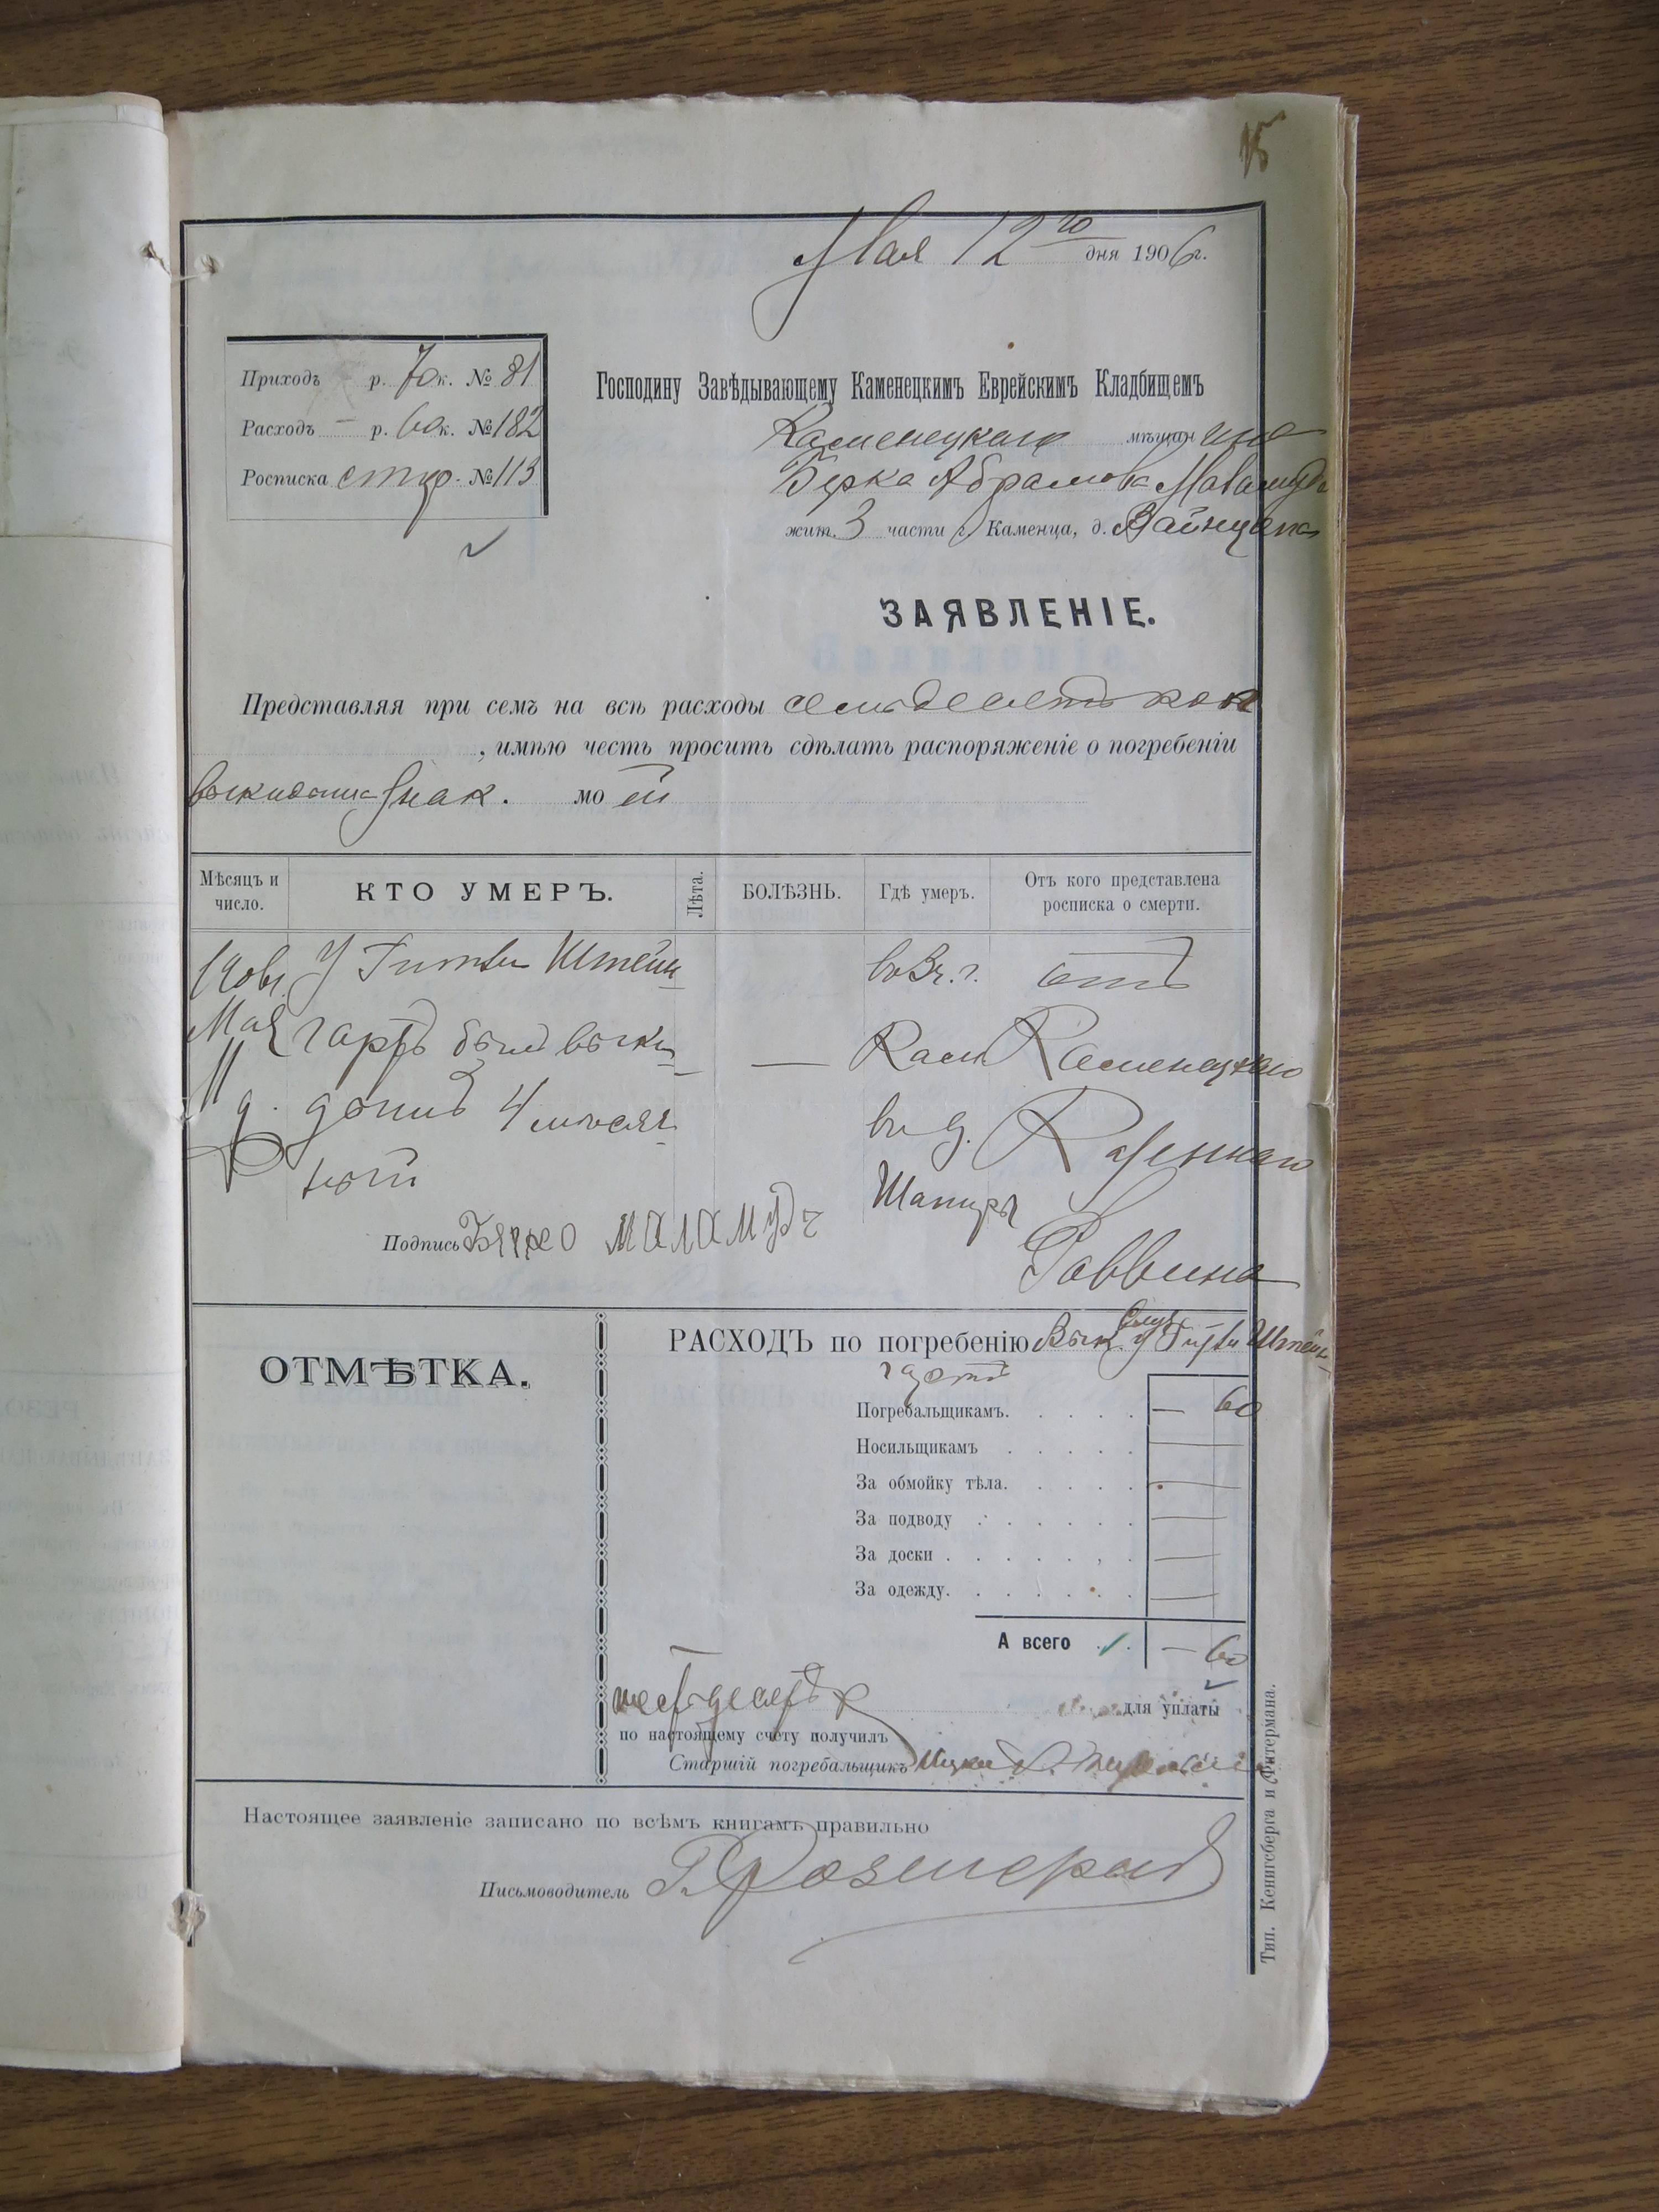 15
Мая 12го дня 1906 г.
Приходъ р. 70 к. № 81
Расходъ — р. 60 к. № 182
Росписка стр. № 113
Господину Завѣдывающему Каменецкимъ Еврейскимъ Кладбищемъ
Каменецкаго мѣщанина
Берка Абрамова Маламудъ
жит. 3 части г. Каменца, д. Вайнцвейга
ЗАЯВЛЕНІЕ.
Представляя при семъ на всѣ расходы семьдесятъ коп
, имѣю честь просить сдѣлать распоряженіе о погребеніи
выкидыша мо ей
Мѣсяцъ и число. КТО УМЕРЪ. Лѣта. БОЛѢЗНЬ. Гдѣ умеръ. Отъ кого представлена росписка о смерти.
190 У Гитли Штейн- въ г. отъ
Мая гартъ былъ выки- — Кам Каменецкаго
11 д. дышъ 4 мѣсяч- въ д. Казеннаго
ный Шапиры
Раввина
Подпись Берко Маламудъ
ОТМѢТКА.
РАСХОДЪ по погребенію Вык. у Гитли Штейн-
гартъ
Погребальщикамъ. — 60
Носильщикамъ —
За обмойку тѣла. —
За подводу —
За доски —
За одежду. —
А всего — 60
шестьдесятъ к для уплаты
по настоящему счету получилъ
Старшій погребальщикъ Ицко
Настоящее заявленіе записано по всѣмъ книгамъ правильно
Письмоводитель Г. Розенгранъ
Тип. Кенигсберга и Фитермана.